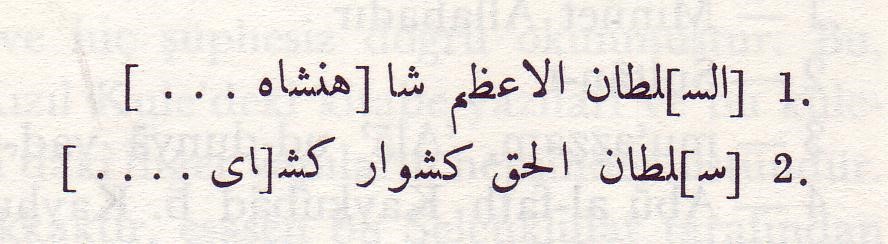 1. [الس]لطان الاعظم شا [هنشاه . . . ]
2. [س]لطان الحق كشوار كش[اى . . . . ]